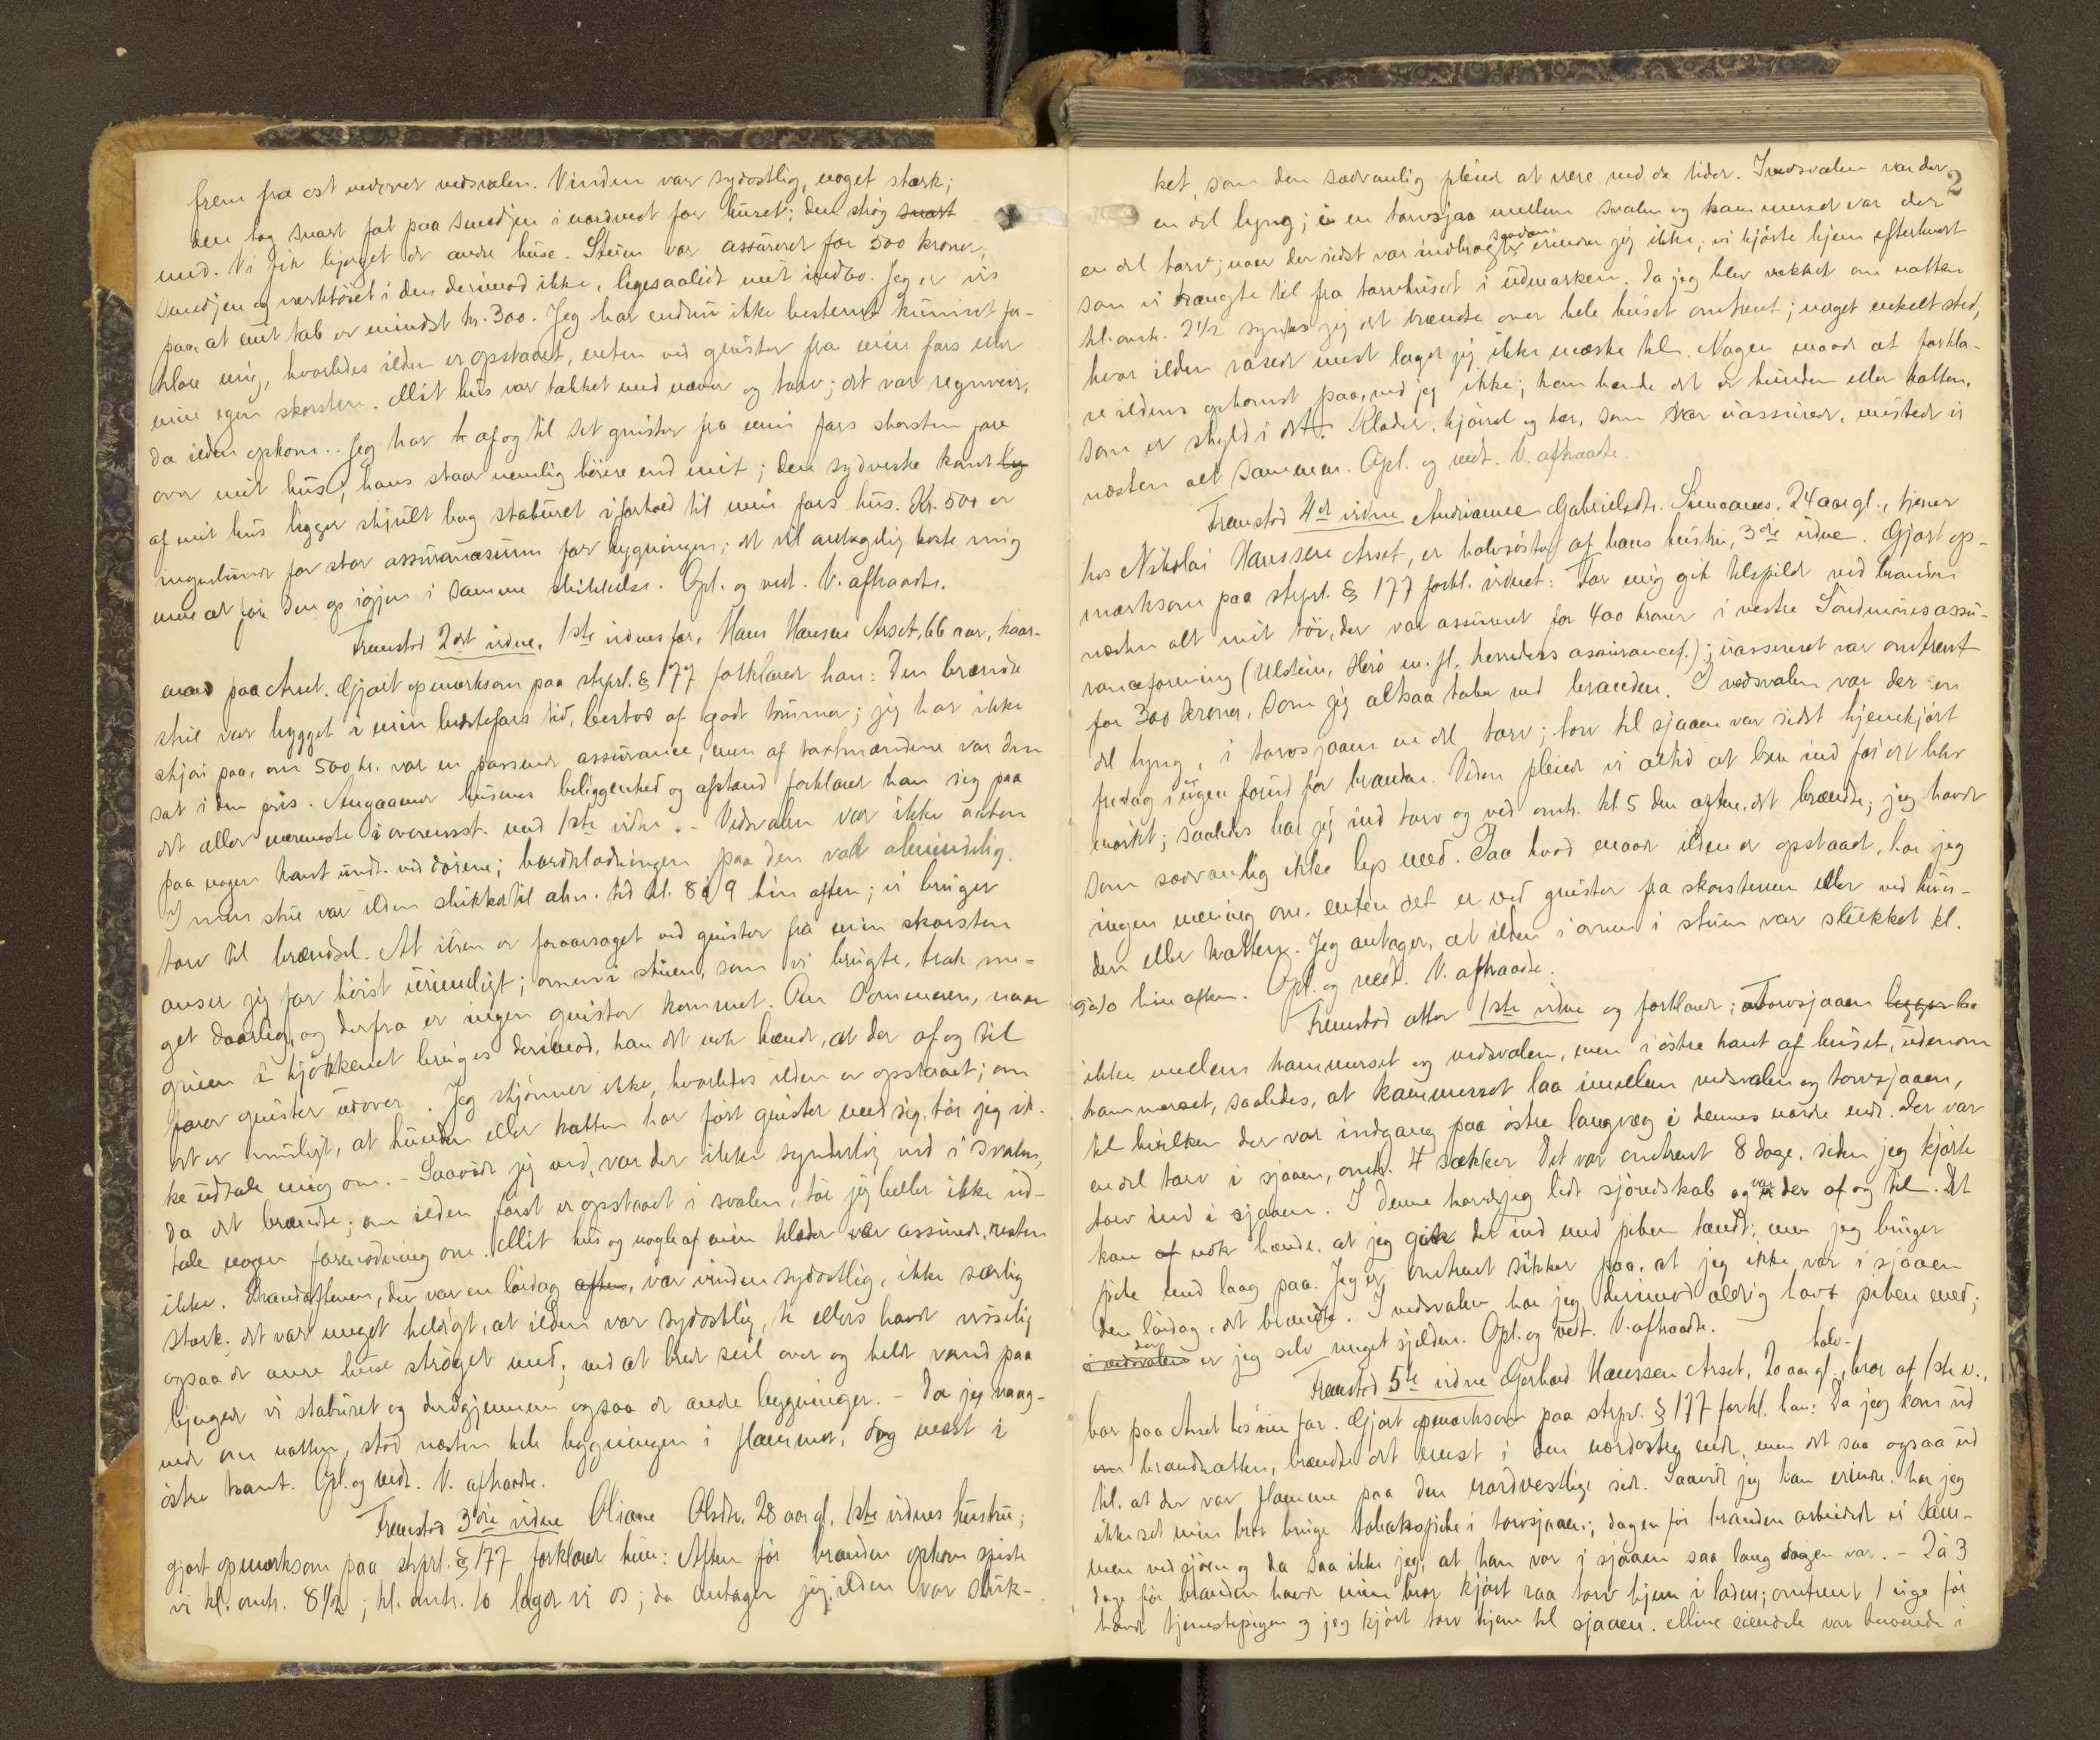 frem fra øst nedover vedsvalen. Vinden var sydostlig, noget stærk;
den tog snart fat paa smedjen i nordvest for huset; den strøg snart
med. Vi fik bjerget de andre huse. Stuen var assureret for 500 kroner,
smedjen og verktøiet i den derimod ikke, ligesaalidt mit indbo. Jeg er vis
paa, at mit tab er mindst kr. 300. Jeg har endnu ikke bestemt kunnet for-
klare mig, hvorledes ilden er opstaaet, enten ved gnister fra min fars eller
min egen skorsten. Mit hus var tækket med næver og torv; det var regnveir,
da ilden opkom. Jeg har af og til set gnister fra min fars skorsten fare
over mit hus; hans staar nemlig høiere end mit; den sydvestre kant
af mit hus ligger skjult bag staburet i forhold til min fars hus. Kr. 500 er
ingenlunde for stor assuransesum for bygningen; det vil antagelig koste mig
mere at faa den op igjen i samme skikkelse. Opl. og vedt. V. aftraadte.
Fremstod 2det vidne, 1ste vidnes far, Hans Hansen Aset, 66 aar, kaar-
mand paa Aset. Gjort opmærksom paa strprl. § 177 forklarer han: Den brændte
stue var bygget i min bedstefars tid, bestod af godt tømmer; jeg har ikke
skjøn paa, om 500 kr. var en passende assurance, men af taxtmændene var den
sat i den pris. Angaaende husenes beliggenhed og afstand forklarer han sig paa
det aller nærmeste i overensst. med 1ste vidne. - Vedsvalen var ikke aaben
paa nogen kant undt. ved dørene; bordklædningen paa den var almindelig.
I min stue var ilden slukket til alm. tid kl. 8 à 9 hin aften; vi bruger
torv til brændsel. At ilden er foraarsaget ved gnister fra min skorsten
anser jeg for høist urimeligt; ovnen i stuen, som vi brugte, trak me-
get daarlig, og derfra er ingen gnister kommet. Om sommeren, naar
gruen i kjøkkenet bruges derimod, kan det nok hænde, at der af og til
farer gnister udover. Jeg skjønner ikke, hvorledes ilden er opstaaet; om
det er muligt, at hunden eller katten har ført gnister med sig, tør jeg ik-
ke udtale mig om. - Saavidt jeg ved, var der ikke synderlig ved i svalen,
da det brændte; om ilden først er opstaaet i svalen, tør jeg heller ikke ud-
tale nogen formodning om. Mit hus og nogle af mine klæder var assureret, resten
ikke. Brandaftenen, der var en lørdag aften, var vinden sydostlig, ikke særlig
stærk; det var meget heldigt, at ilden var sydostlig, ti ellers havde visselig
ogsaa de andre huse strøget med; ved at brede seil over og helde vand paa
bjerget vi staburet og derigjennem ogsaa de andre bygninger. - Da jeg vaag-
nede om natten, stod næsten hele bygningen i flammer, dog mest i
østre kant. Opl. og vedt. V. aftraadte.
Fremstod 3die vidne Oliane Olsdtr. 28 aar gl., 1ste vidnes hustru;
gjort opmærksom paa strprl. § 177 forklarer hun: Aften før branden opkom spiste
vi kl. omtr. 8 1/2; kl. omtr. 10 lagde vi os; da antager jeg, ilden var sluk-
2
ket, som den sædvanlig pleier at være ved de tider. I vedsvalen var der
en del lyng; i en torvsjaa mellem svalen og kammerset var der
en del torv; naar der sidst var indbragt saadan erindrer jeg ikke; vi kjørte hjem efterhvert
som vi trængte til fra torvhuset i udmarken. Da jeg blev vækket om natten
kl. omtr. 2 1/2 syntes jeg det brændte over hele huset omtrent; noget enkelt sted,
hvor ilden rasede mest lagde jeg ikke mærke til. Nogen maade at forkla-
re ildens opkomst paa, ved jeg ikke; kan hænde det er hunden eller katten,
som er skyld i det. Klæder, kjørrel og kar, som var uassureret, mistede vi
næsten alt sammen. Opl. og vedt. V. aftraadte.
Fremstod 4de vidne Andrianne Gabrielsdtr. 24 aar gl., tjener
hos Nikolai Hanssen Aset, er halvsøster af hans hustru, 3die vidne. Gjort op-
mærksom paa strprl. § 177 forkl. vidnet: For mig gik tilspilde ved branden
næsten alt mit tøi, der var assureret for 400 kroner i vestre Søndmøres assu-
ranceforening (Ulstein, Herø m. fl. herreders assurancef.); uassureret var omtrent
for 300 kroner, som jeg altsaa taber ved branden. I vedsvalen var der en
del lyng, i torvsjaaen en del torv; torv til sjaaen var sidst hjemkjørt
fredag i ugen forud for branden. Veden pleier vi altid at bære ind før det blir
mørkt; saaledes bar jeg ind torv og ved omtr. kl 5 den aften, det brændte; jeg havde
som sædvanlig ikke lys med. Paa hvad maade ilden er opstaaet, har jeg
ingen mening om, enten det er ved gnister fra skorstenen eller ved hun-
den eller katten. Jeg antager, at ilden i ovnen i stuen var slukket kl.
9 à 10 hin aften. Opl. og vedt. V. aftraadte.
Fremstod atter 1ste vidne og forklarer; Torvsjaaen ligger laa
ikke mellem kammerset og vedsvalen, men i østre kant af huset, udenom
kammerset, saaledes, at kammerset laa imellem vedsvalen og torvsjaaen,
til hvilken der var indgang paa østre langvæg i dennes nordre ende. Der var
en del torv i sjaaen, omtr. 4 sækker. Det var omtrent 8 dage, siden jeg kjørte
torv ind i sjaaen. I denne havde jeg lidt sjøredskab og var der af og til. Det
kan af nok hænde, at jeg gik der ind med piben tændt; men jeg bruger
pibe med laag paa. Jeg er omtrent sikker paa, at jeg ikke var i sjaaen
den lørdag, det brændte. I vedsvalen har jeg derimod aldrig havt piben med;
i vedsvalen der er jeg selv meget sjælden. Opl. og vedt. V. aftraadte.
Fremstod 5te vidne Gerhard Hanssen Aset, 20 aar gl., halv-bror af 1ste v.,
bor paa Aset hos min far. Gjort opmærksom paa strprl. § 177 forkl. han: Da jeg kom ud
om brandnatten, brændte det mest i den nordostlig ende, men det saa ogsaa ud
til, at der var flamme paa den nordvestlige side. Saavidt jeg kan erindre, har jeg
ikke set min bror bruge tobakspibe i torvsjaaen; dagen før branden arbeidet vi sam-
men ved sjøen og da saa ikke jeg, at han var i sjaaen saa lang dagen var. - 2 à 3
dage før branden havde min bror kjørt raa torv hjem i laden; omtrent 1 uge før
havde tjenestepigen og jeg kjørt torv hjem til sjaaen. Mine eiendele var beroende i